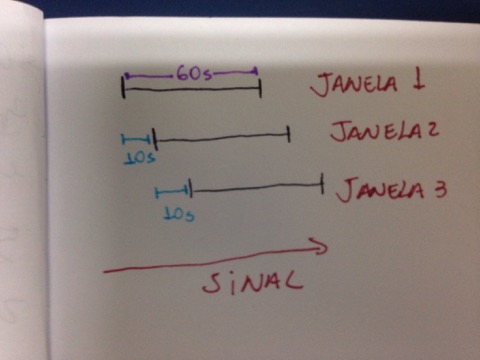 60s
JANELA 1
JANELA 2
10s
JANELA 3
10s
SiNAL